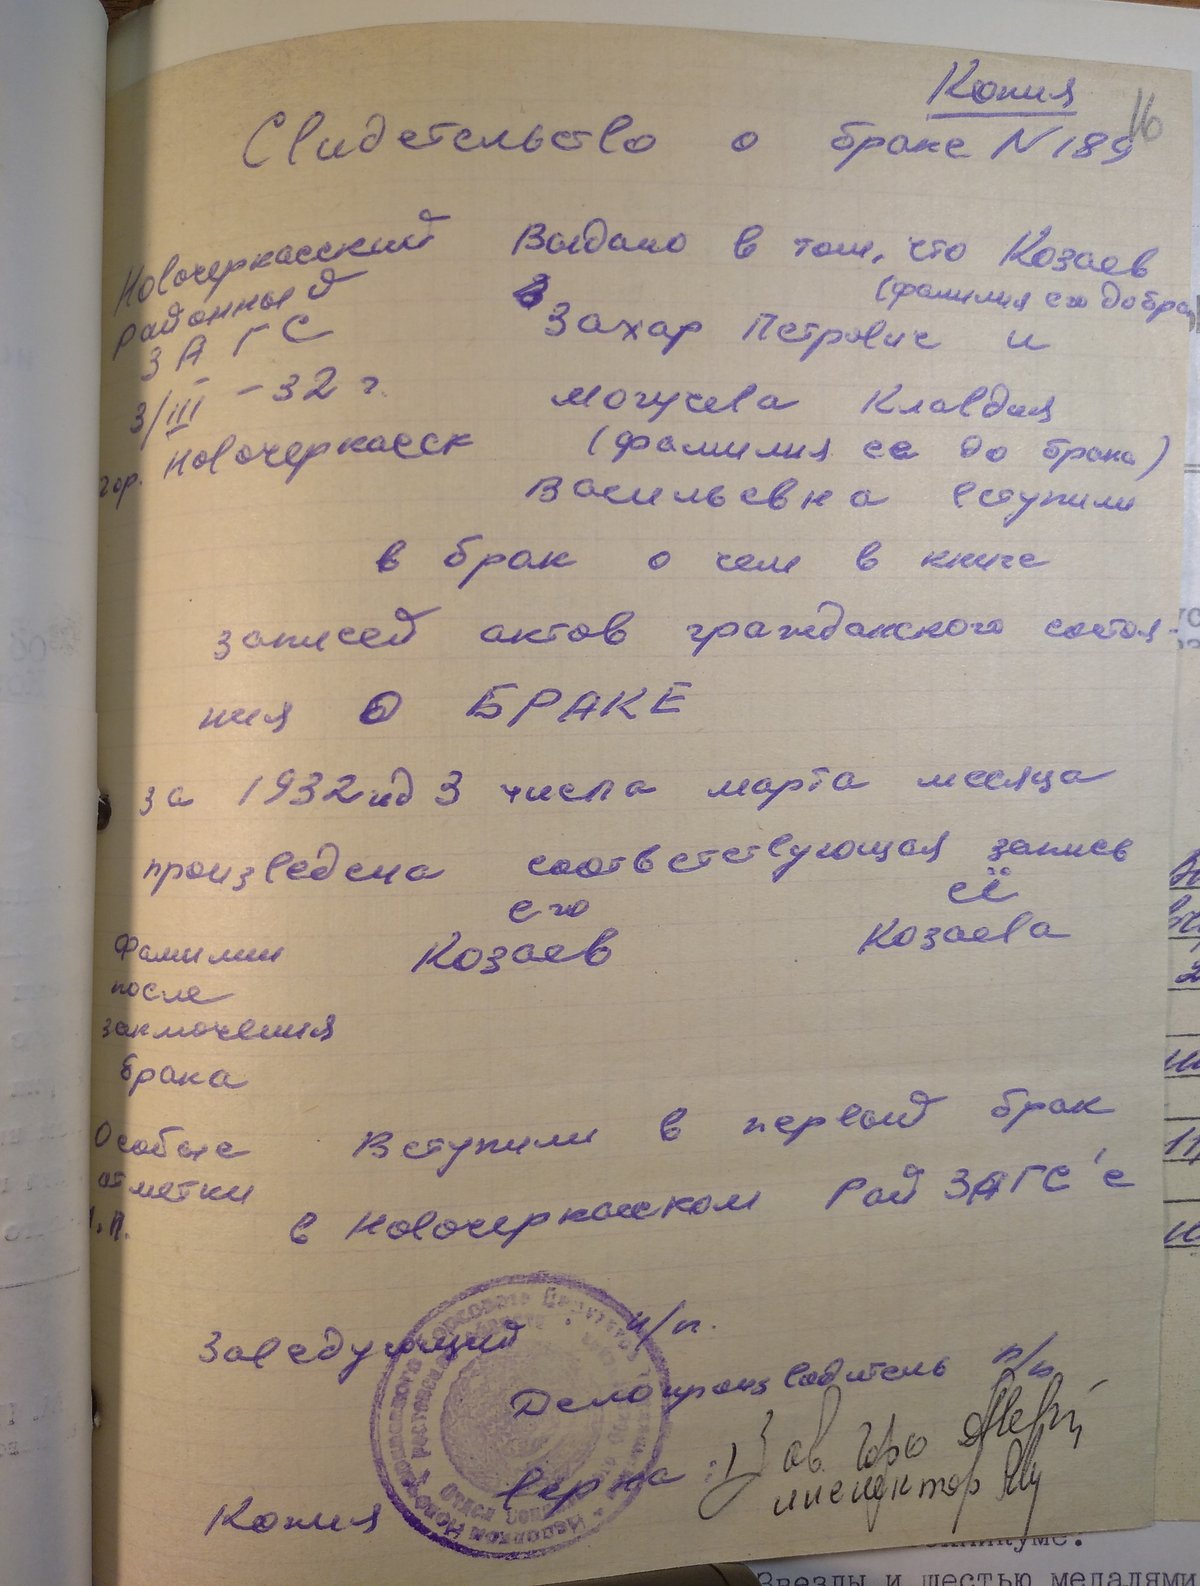 Копия
16
Свидетельство о браке N 189
Новочеркасский
районный
ЗАГС
3/III - 32 г.
гор. Новочеркасск
Выдано в том, что Козаев
(фамилия его до брака)
Захар Петрович и
Могучева Клавдия
(фамилия ее до брака)
Васильевна вступили
в брак о чем в книге
записей актов гражданского состоя-
ния О БРАКЕ
за 1932 год 3 числа марта месяца
произведена соответствующая запись
его её
Фамилии Козаев Козаева
после
заключения
брака
Особые Вступили в первый брак
отметки в Новочеркасском Рай ЗАГС'е
Заведующий п/п.
Делопроизводитель п/п
Копия верна:
Зав. Горо
инспектор
Звезды и шестью медалями